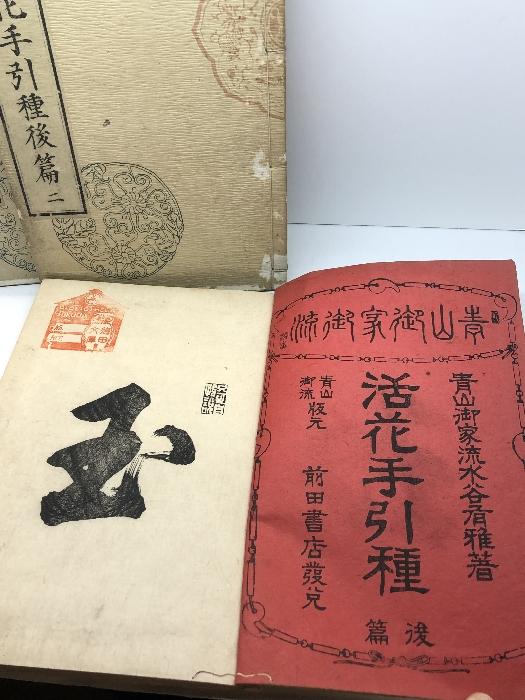 花手引種後篇 二
青山御家御流
青山御家流水谷脊雅著
活花手引種
後篇
青山
御流
版元
前田書店發兌
玉